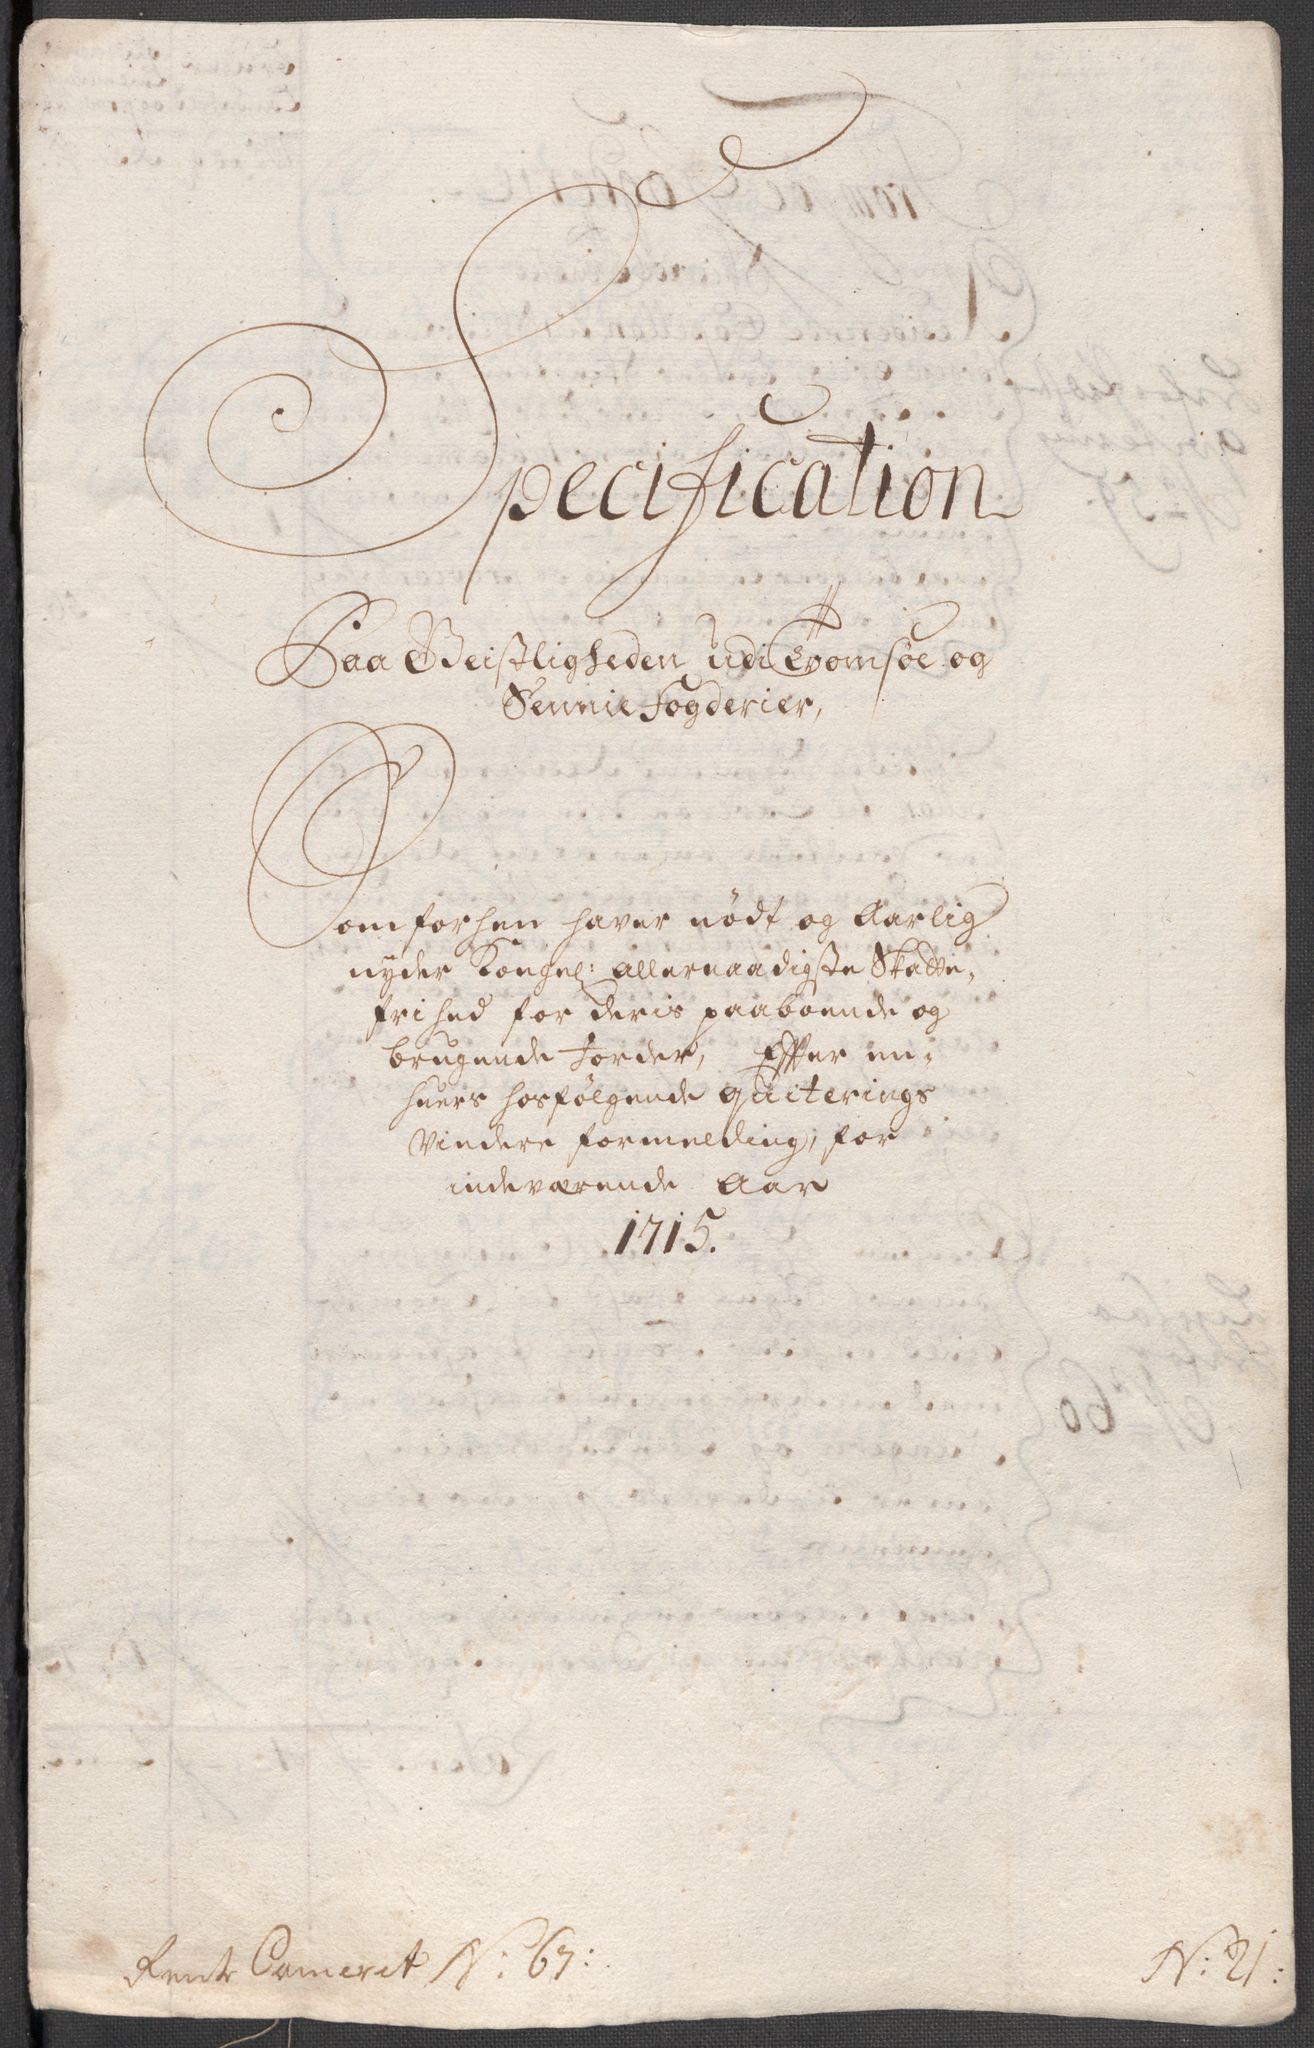 Specification
Paa Geistligheden udi Tromsøe og
Sennie Fogderier,
Som forhen haver nødt og Aarlig
nyder Kongel: allernaadigste Skatte,
frihed for deris paaboende og
brugende Jorder, Efter en,
huers hosfølgende quiterings
Videre formelding, for
indeværende Aar
1715.
Rente Camerit N: 67:
N: 21: